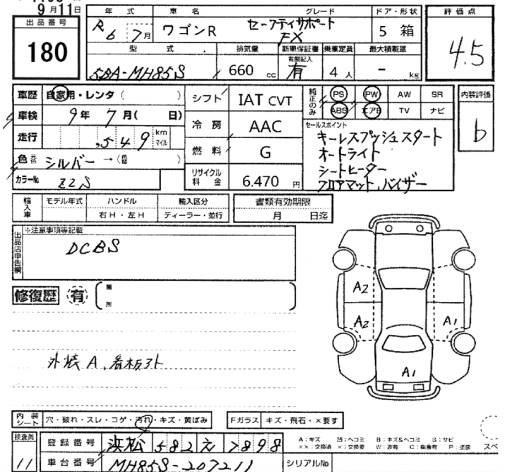 9月11日
出品番号
180
年式 車名 グレード ドア・形状 評価点
R6年7月 ワゴンR セーフティサポート FX 5 箱 4.5
型式 排気量 新車保証書 乗車定員 最大積載量
5BA-MH85S 660cc 有 4人 - kg
車歴 自家用・レンタ( )
車検 9年7月( 日)
走行 549 km マイル
色 シルバー→( )
カラーNo Z2S
シフト IAT CVT
冷房 AAC
燃料 G
リサイクル料金 6.470円
純正のみ PS PW AW SR
ABS エアB TV ナビ
内装評価
b
セールスポイント
キーレスプッシュスタート
オートライト
シートヒーター
フロアマット、バイザー
輸入車 モデル年式 ハンドル 輸入区分 書類有効期限
右H・左H ディーラー・並行 月 日迄
出品店申告欄 ※注意事項等記載
DCBS
修復歴 有 箇所
A2
A2 A1
A1
外装A、看板ヌケ
内装シート 穴・破れ・スレ・コゲ・汚れ・キズ・黄ばみ Fガラス キズ・飛石・×要す
検査員 11
登録番号 浜松 582 え 7898
車台番号 MH85S-207211 シリアルNo